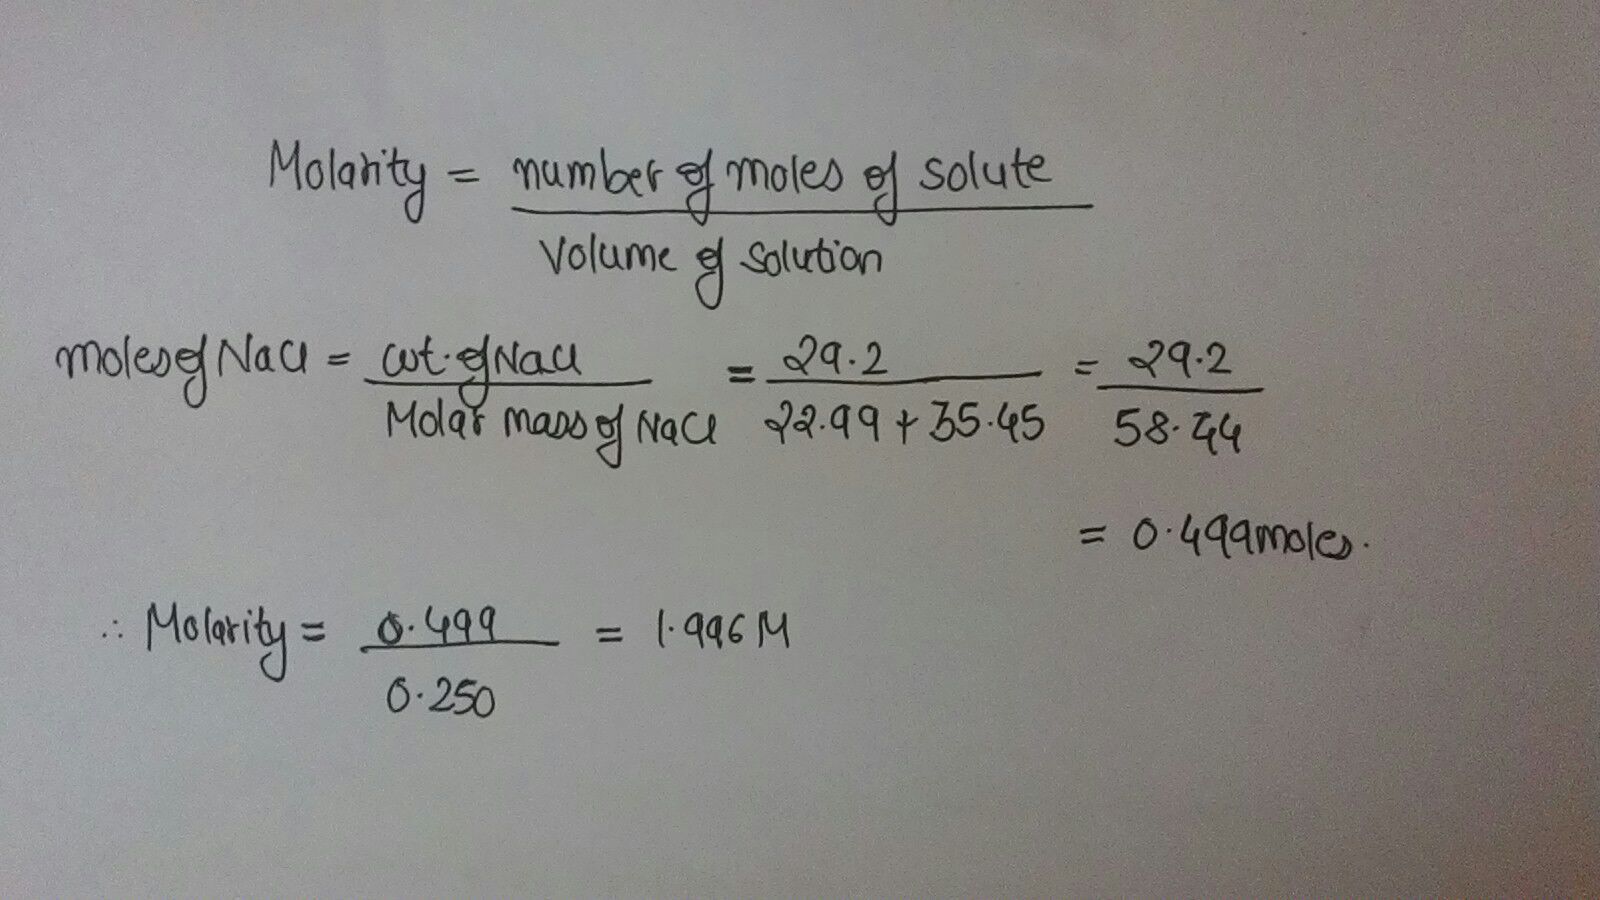 Molarity = number of moles of solute
Volume of solution
moles of NaCl = wt. of NaCl = 29.2 = 29.2
Molar mass of NaCl 22.99 + 35.45 58.44
= 0.499moles.
∴ Molarity = 0.499 = 1.996 M
0.250